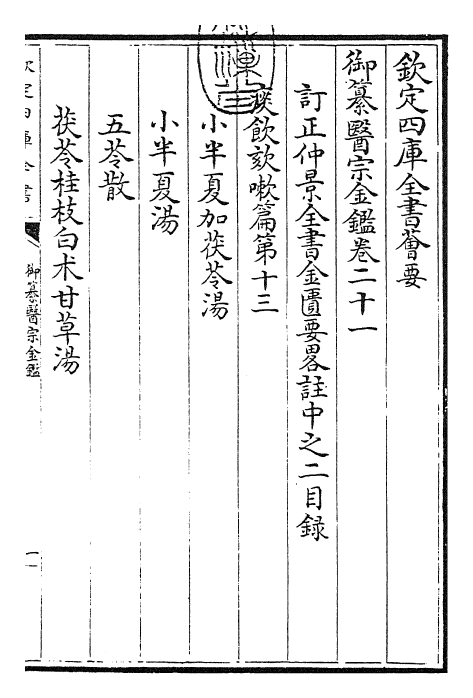 欽定四庫全書薈要
御纂醫宗金鑑卷二十一
訂正仲景全書金匱要畧註中之二目録
痰飲欬嗽篇第十三
小半夏加茯苓湯
小半夏湯
五苓散
茯苓桂枝白朮甘草湯
欽定四庫全書
御纂醫宗金鑑
一